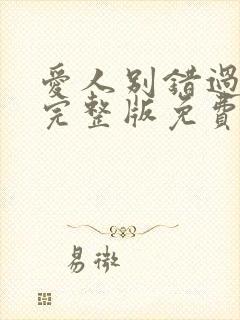 愛人別錯過
完整版免費
易微